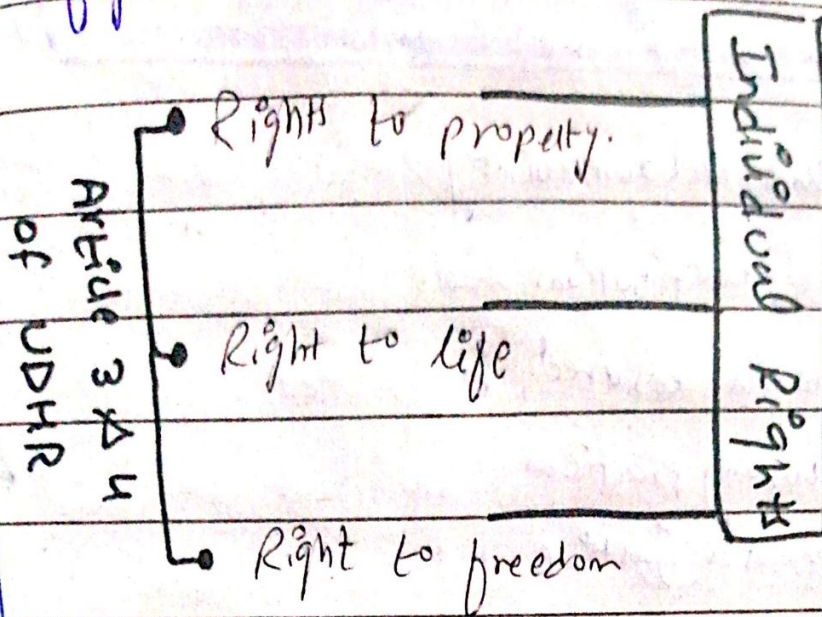 Individual Rights
Rights to property.
Right to life
Right to freedom
Article 3 & 4
of UDHR